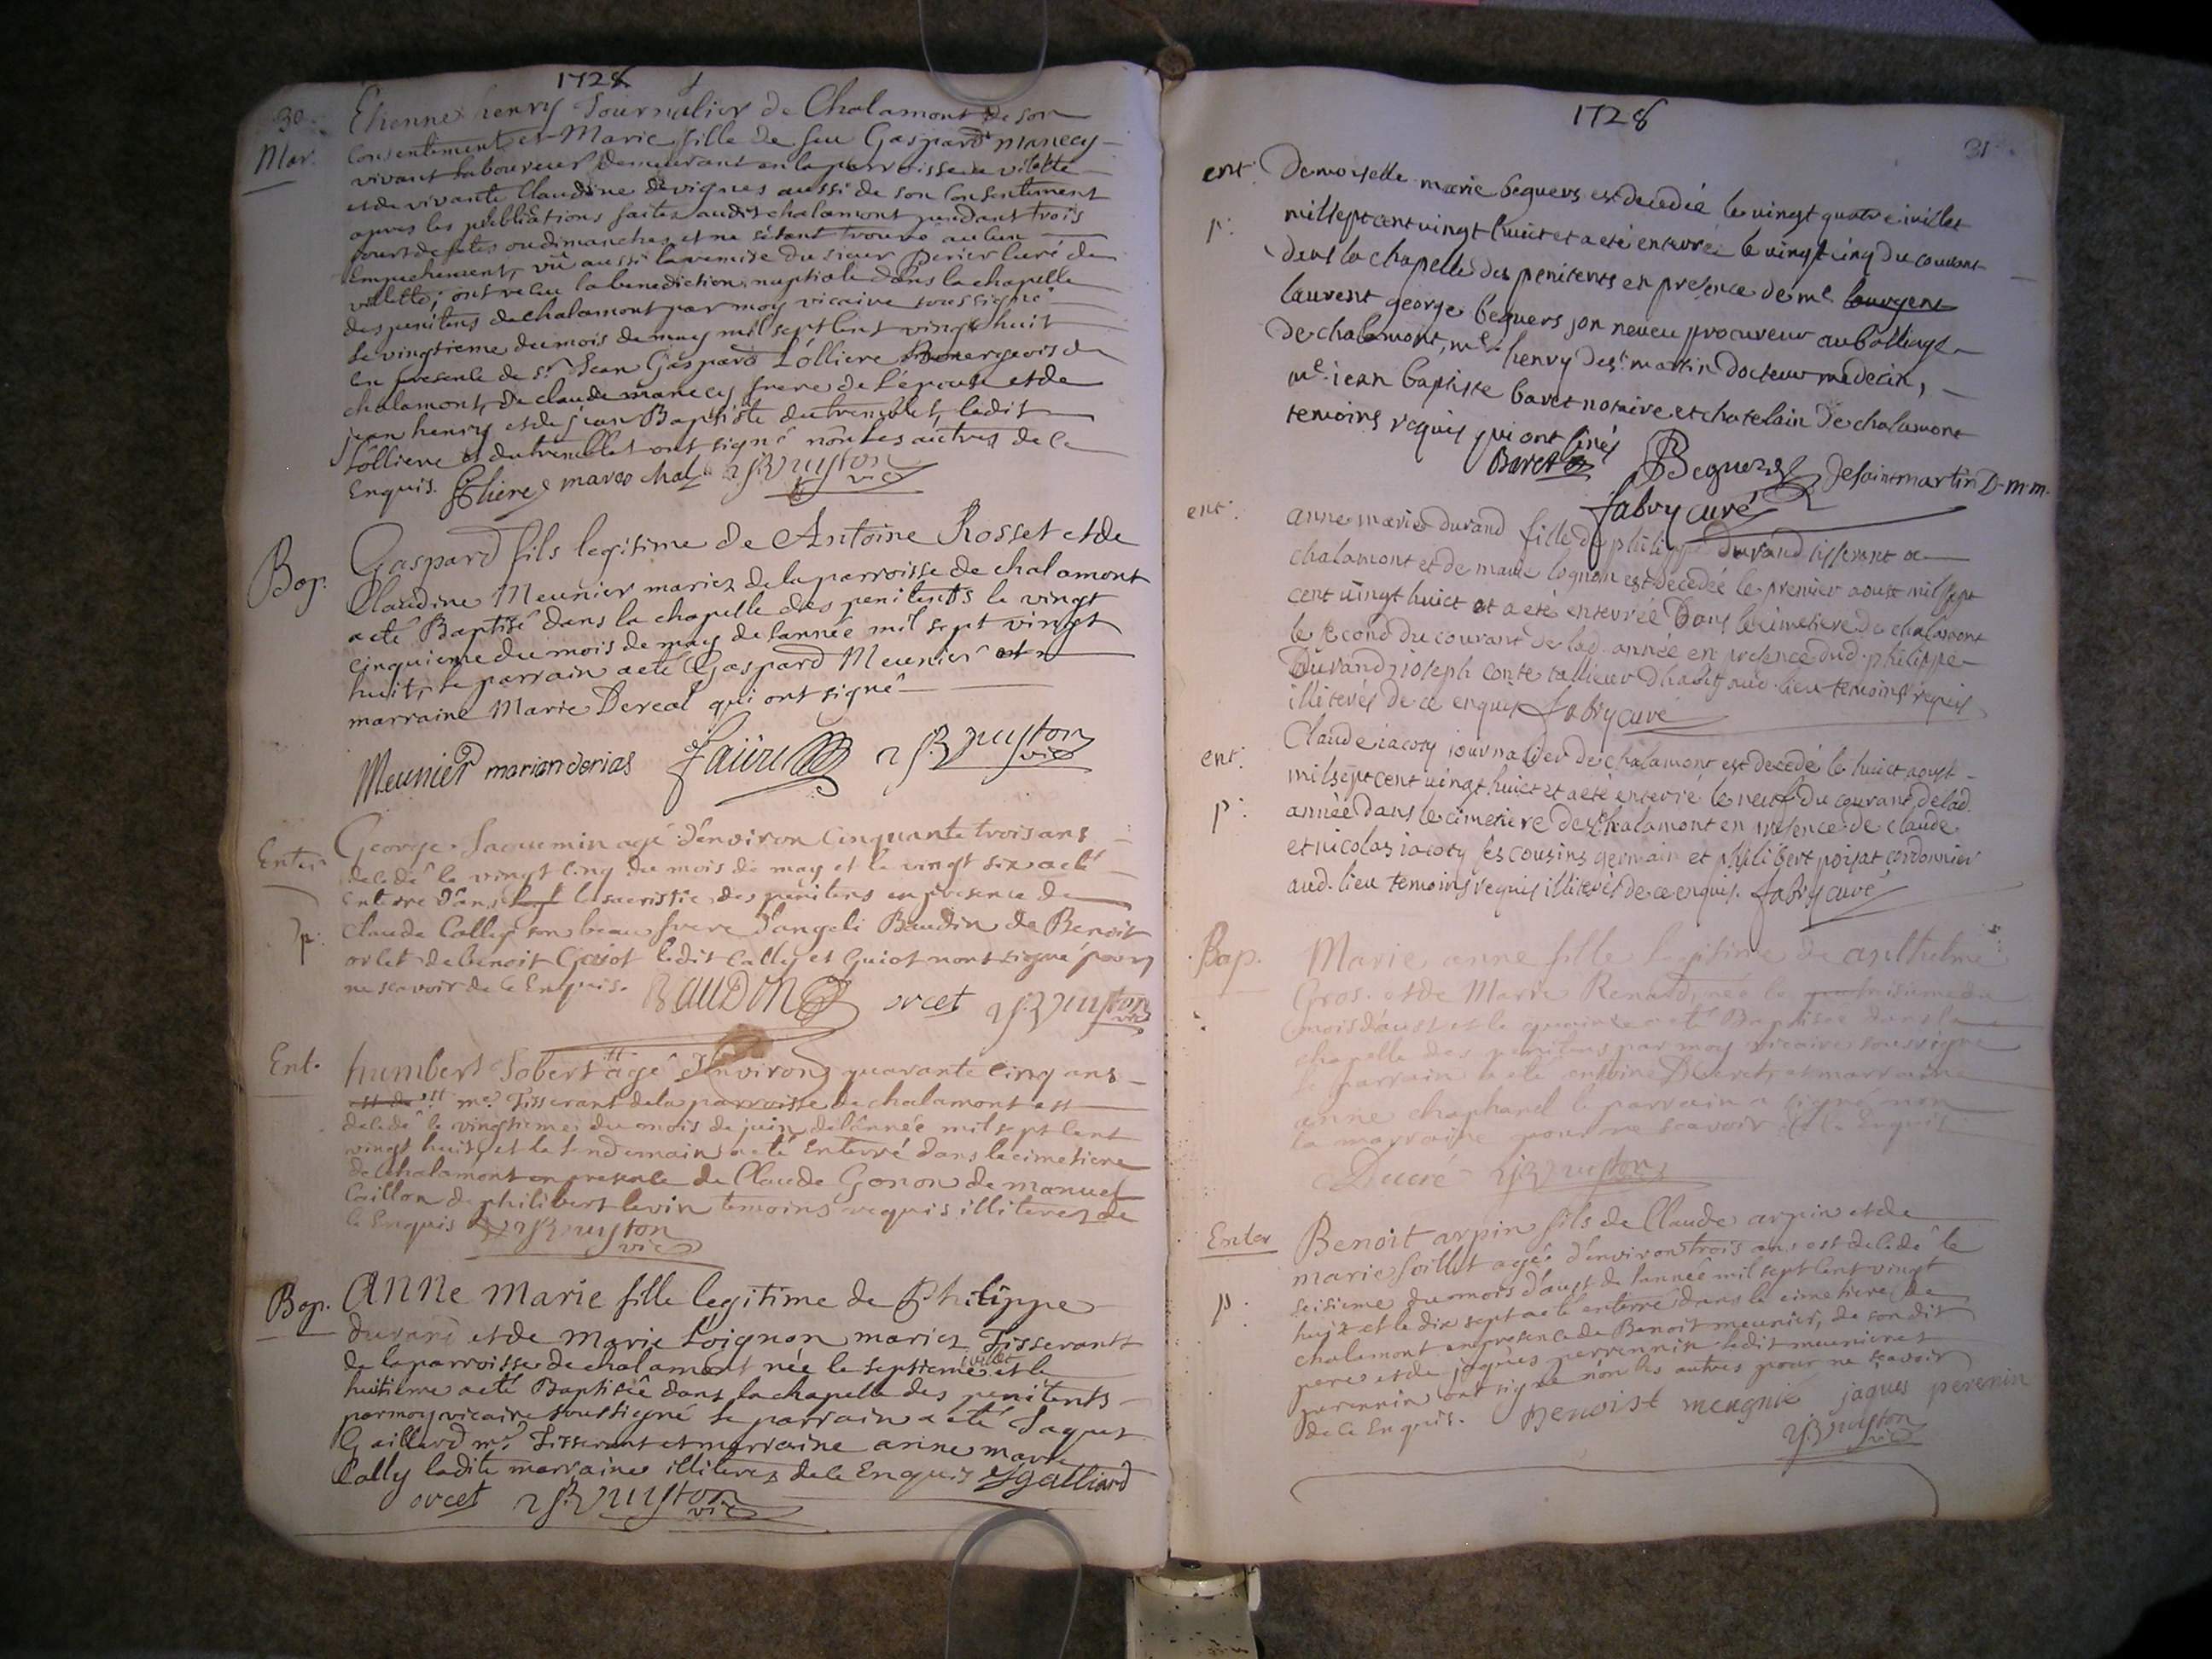 1728
30.
Mar.
Etienne henry Journalier de Chalamont de son
Consentement et Marie fille de feu Gaspard manecy
vivant laboureur demeurant en la parroisse de vilette
et de vivante Claudine de vignes aussi de son Consentement
apres les publications faites audit chalamont pendant trois
jours de fetes ou dimanches et ne setant trouvé aucun
Empechement, vû aussi la remise du sieur Perier Curé de
villette; ont receu la benediction nuptiale dans la chapelle
des penitens de chalamont par moy vicaire soussigné
le vingtieme du mois de may mil sept Cent vingt huit
en presence de sr Jean Gaspard Lolliere Bourgeois de
chalamont, de claude manecy frere de L'épouse et de
jean henry et de jean Baptiste dutremblet, ledit
Lolliere et dutremblet ont signé non les autres de ce
Enquis.
vic
Bap.
Gaspard fils legitime de Antoine Rosset et de
Claudine Meunier mariez de la parroisse de chalamont
a eté Baptisé dans la chapelle des penitents le vingt
cinquieme du mois de may de lannée mil sept vingt
huit, le parrain a eté Gaspard Meunier et
marraine Marie Dereal qui ont signé
Meunier marian derias faüre
vic
Enter
p.
George Saouemin agé d'environ Cinquante trois ans
decedé le vingt Cinq du mois de may et le vingt six a eté
Enterré dans la sacristie des penitens en presence de
Claude Cally son beau frere d'angeli Baudin de Benoit
orlet de benoit Guiot ledit Cally et Guiot nont signé pour
ne scavoir de ce Enquis. BAUDIN orcet
vic
Ent.
humbert Jobert agé d'environ quarante Cinq ans
me Tisserant de la parroisse de chalamont est
decedé le vingtieme du mois de juin de lannée mil sept Cent
vingt huit, et le lendemain a eté Enterré dans le cimetiere
de Chalamont en presence de Claude Gonon de manuel
Caillon de philibert levin temoins requis illiterez de
ce Enquis
vic
Bap.
ANNe Marie fille legitime de Philippe
durand et de Marie Loignon mariez Tisserantt
de la parroisse de chalamont née le septieme juillet et le
huitieme a eté Baptisée dans la chapelle des penitents
par moy vicaire soussigné le parrain a eté Jaques
Gaillard me Tisserant et marraine anne marie
Cally ladite marraine illiterez de ce Enquis galliard
orcet
vic
1728
31.
ent.
p.
Demoiselle marie beguers est decedée le vingt quatre iuillet
mil sept cent vingt huict et a eté enterrée le vingt cinq du courant
dans la chapelle des penitents en presence de me bourgeois
laurent george beguers son neveu procureur au bailliage
de chalamont, me henry de st martin docteur medecin,
me iean baptiste baret notaire et chatelain de chalamont
temoins requis qui ont sinés
Baret Beguers Desaintmartin D.m.m.
fabry curé
ent.
anne marie durand fille de philippe durand tisserant de
chalamont et de marie lognon est decedée le premier aoust mil sept
cent vingt huict et a eté enterrée dans le cimetiere de chalamont
le second du courant de lad. année en presence dud. philippe
Durand, ioseph conte tallieur dhabit aud. lieu temoins requis
illiterés de ce enquis fabry curé
ent.
p.
Claude iacoty iournalier de chalamont est decedé le huict aoust
mil sept cent vingt huict et a eté enterré le neuf du courant de lad.
année dans le cimetiere de chalamont en presence de claude
et nicolas iacoty ses cousins germain et philibert poisat cordonnier
aud. lieu temoins requis illiterés de ce enquis. fabry curé
Bap.
Marie anne fille legitime de anthelme
Gros et de Marie Renaud, née le
mois d'aust et le quainze a eté Baptisée dans la
chapelle des penitens par moy vicaire soussigné
le parrain a eté antoine Ducret, et marraine
anne chaphanel le parrain a signé non
la marraine pour ne scavoir de ce Enquis
Ducré
Enter
p.
Benoit arpin fils de Claude arpin et de
marie soillet agé d'environ trois ans est decedé le
seisieme du mois d'aust de lannée mil sept Cent vingt
huit et le dix sept a eté enterré dans le cimetiere de
chalamont en presence de Benoit meunier, de son dit
pere et de jaques perrennin ledit meunier et
parennin ont signé non les autres pour ne scavoir
de ce Enquis. Benoist meugnié jaques perenin
vic